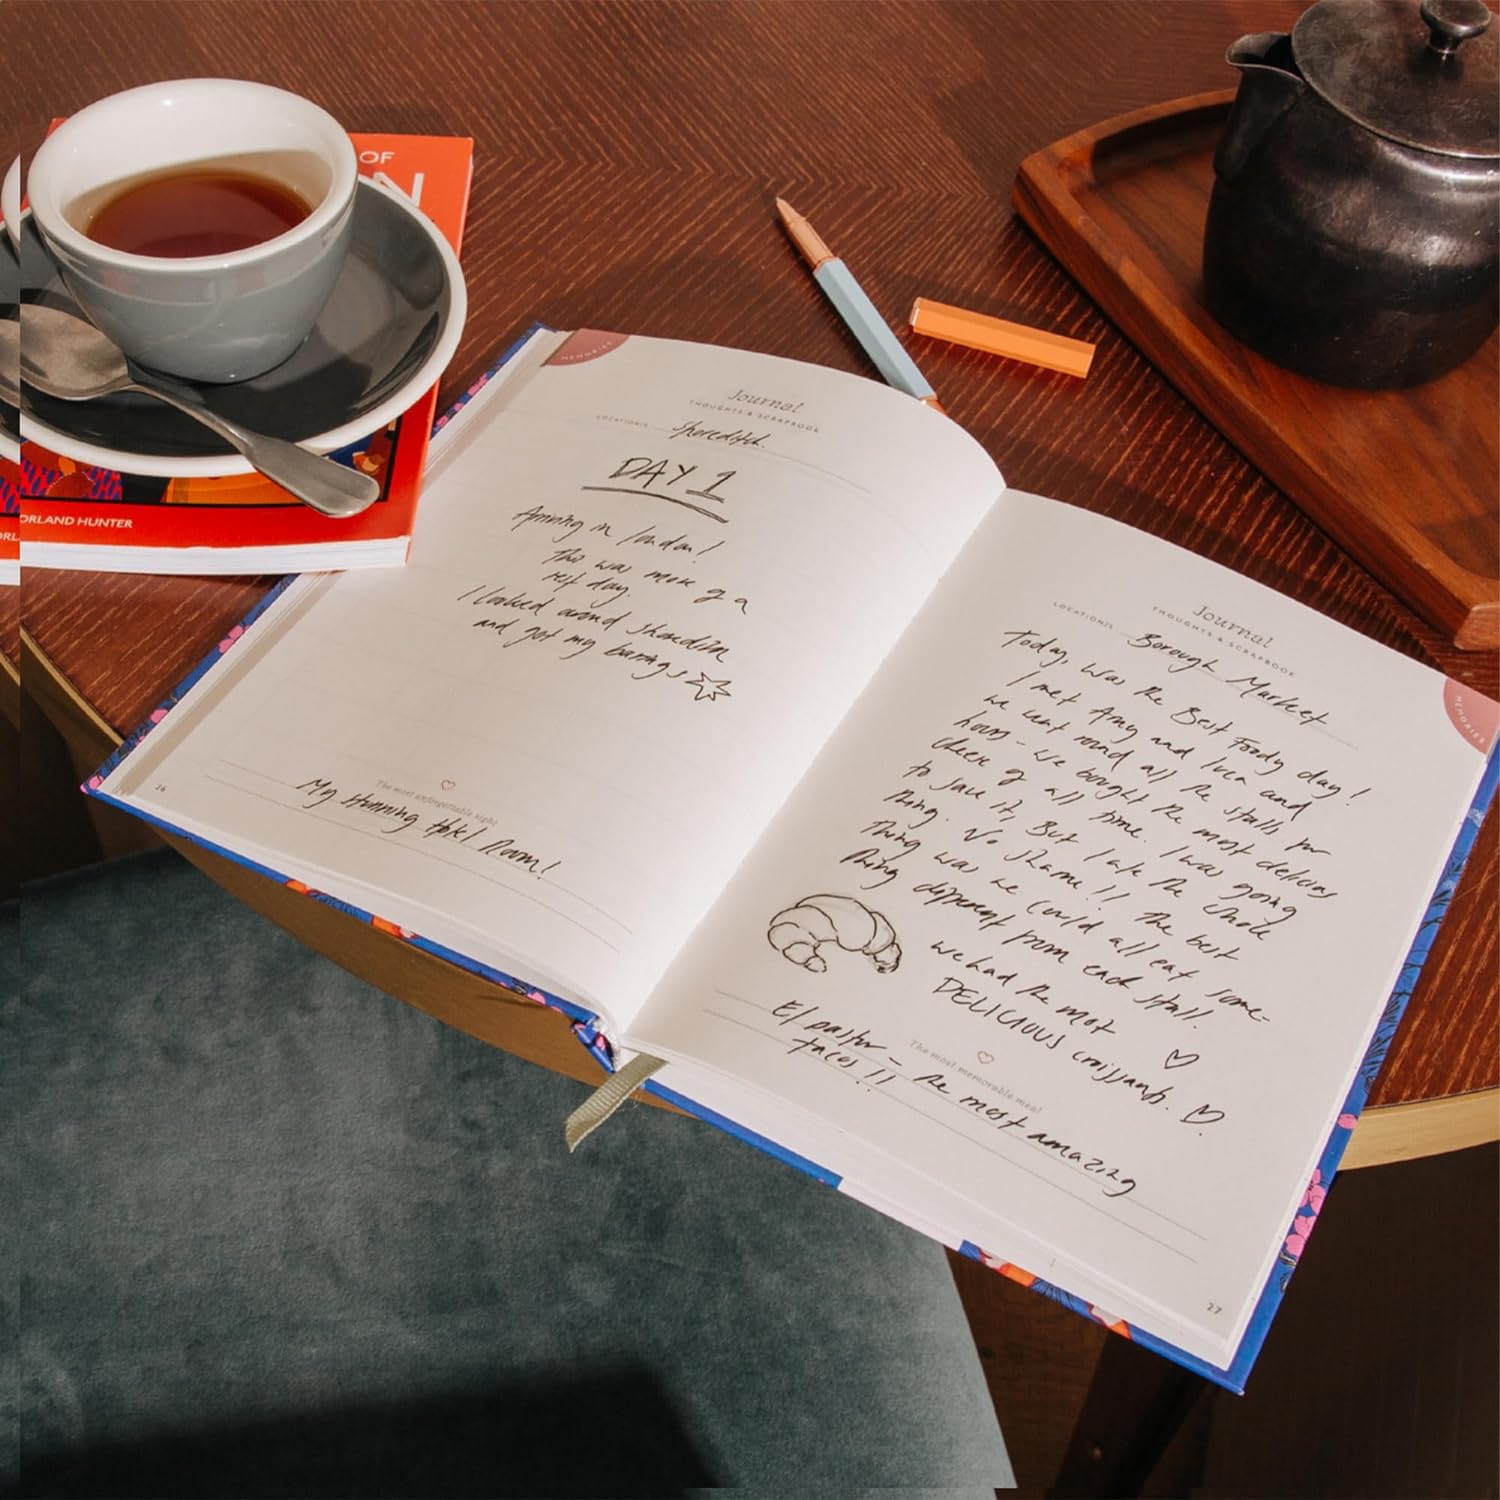 OF
N
ORLAND HUNTER
ORL
MEMORIES
Journal
THOUGHTS & SCRAPBOOK
LOCATION/S Shoreditch.
DAY 1
Arriving in london!
This was more of a
rest day.
I looked around Shoreditch
and got my barings
The most unforgettable sight
My stunning Hotel Room!
26
MEMORIES
Journal
THOUGHTS & SCRAPBOOK
LOCATION/S Borough Market
Today, was the Best Foody day!
I met Amy and Luca and
we went round all the stalls for
hours - we bought the most delicious
cheese of all time. I was going
to save it, But I ate the whole
thing. No shame!! The best
thing was we could all eat some-
thing different from each stall.
we had the most
DELICIOUS croissants.
The most memorable meal
El pastor - the most amazing
tacos!!
27